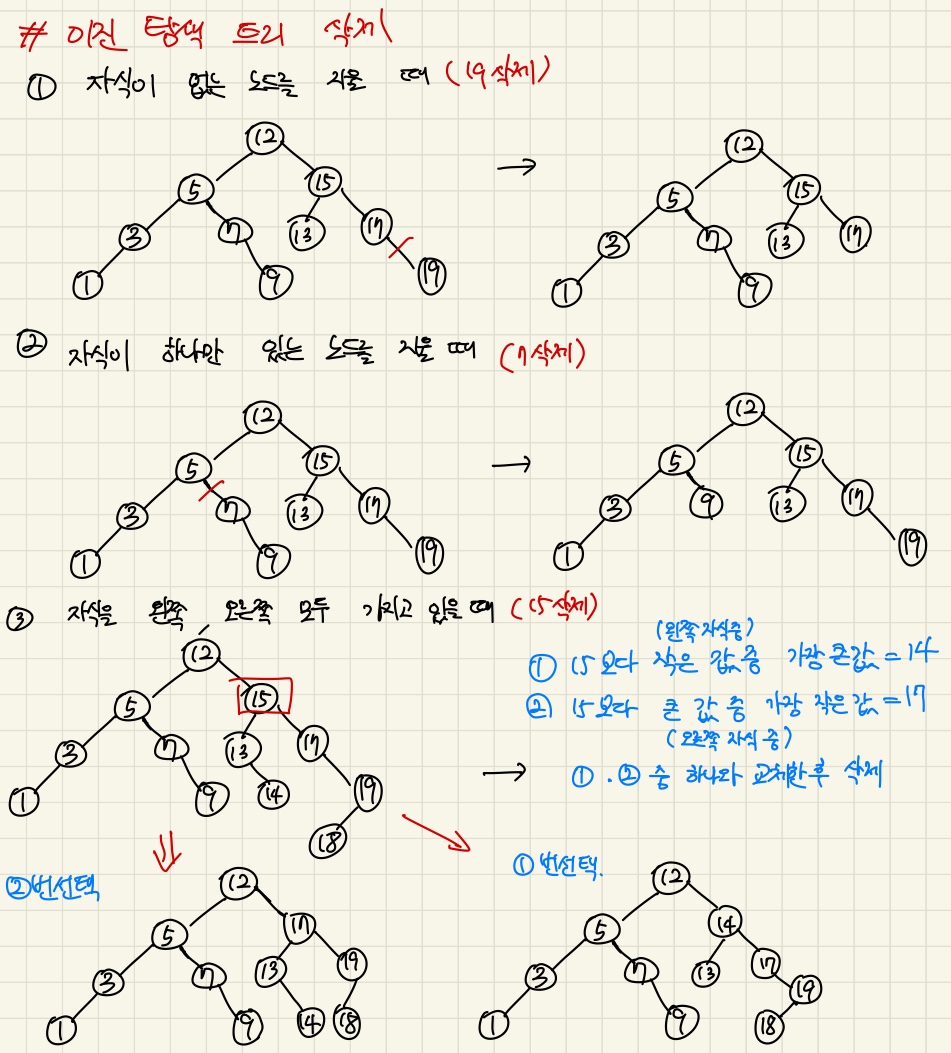 # 이진 탐색 트리 삭제
① 자식이 없는 노드를 지울 때 (19삭제)
12 → 12
5 15 5 15
3 7 13 17 3 7 13 17
1 9 19 1 9
② 자식이 하나만 있는 노드를 지울 때 (7삭제)
12 → 12
5 15 5 15
3 7 13 17 3 9 13 17
1 9 19 1 19
③ 자식을 왼쪽, 오른쪽 모두 가지고 있을 때 (15삭제)
12
5 15
3 7 13 17
1 9 14 19
18
(왼쪽 자식중)
① 15보다 작은 값 중 가장 큰값 = 14
② 15보다 큰 값 중 가장 작은값 = 17
(오른쪽 자식 중)
→ ①.② 중 하나와 교체한 후 삭제
②번선택
12
5 17
3 7 13 19
1 9 14 18
①번선택.
12
5 14
3 7 13 17
1 9 19
18